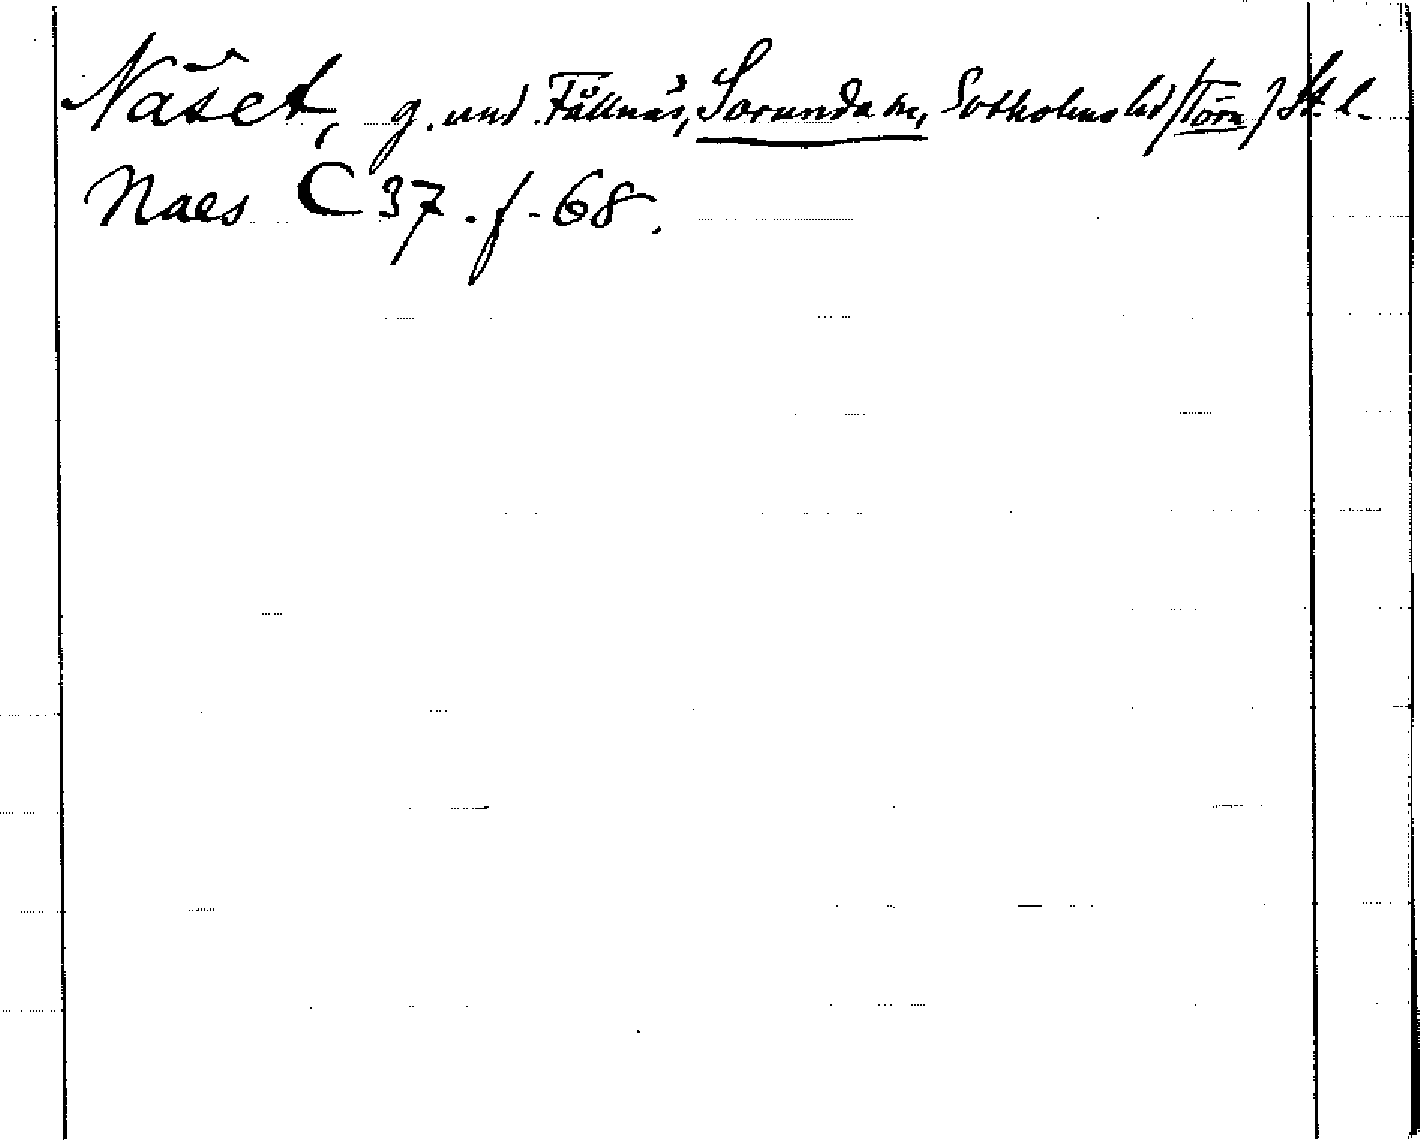 Näset, g. und. Fållnäs, Sorunda sn, Sotholms hd /Törn/ St. l.
Naes C 37. f. 68.